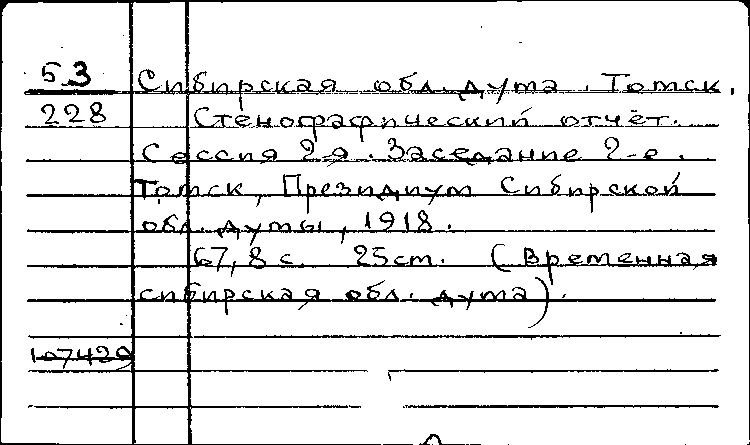 53 Сибирская обл. дума. Томск.
228 Стенографический отчёт.
Сессия 2-я. Заседание 2-е.
Томск, Президиум Сибирской
обл. думы, 1918.
67, 8 с. 25 cm. (Временная
сибирская обл. дума).
107429